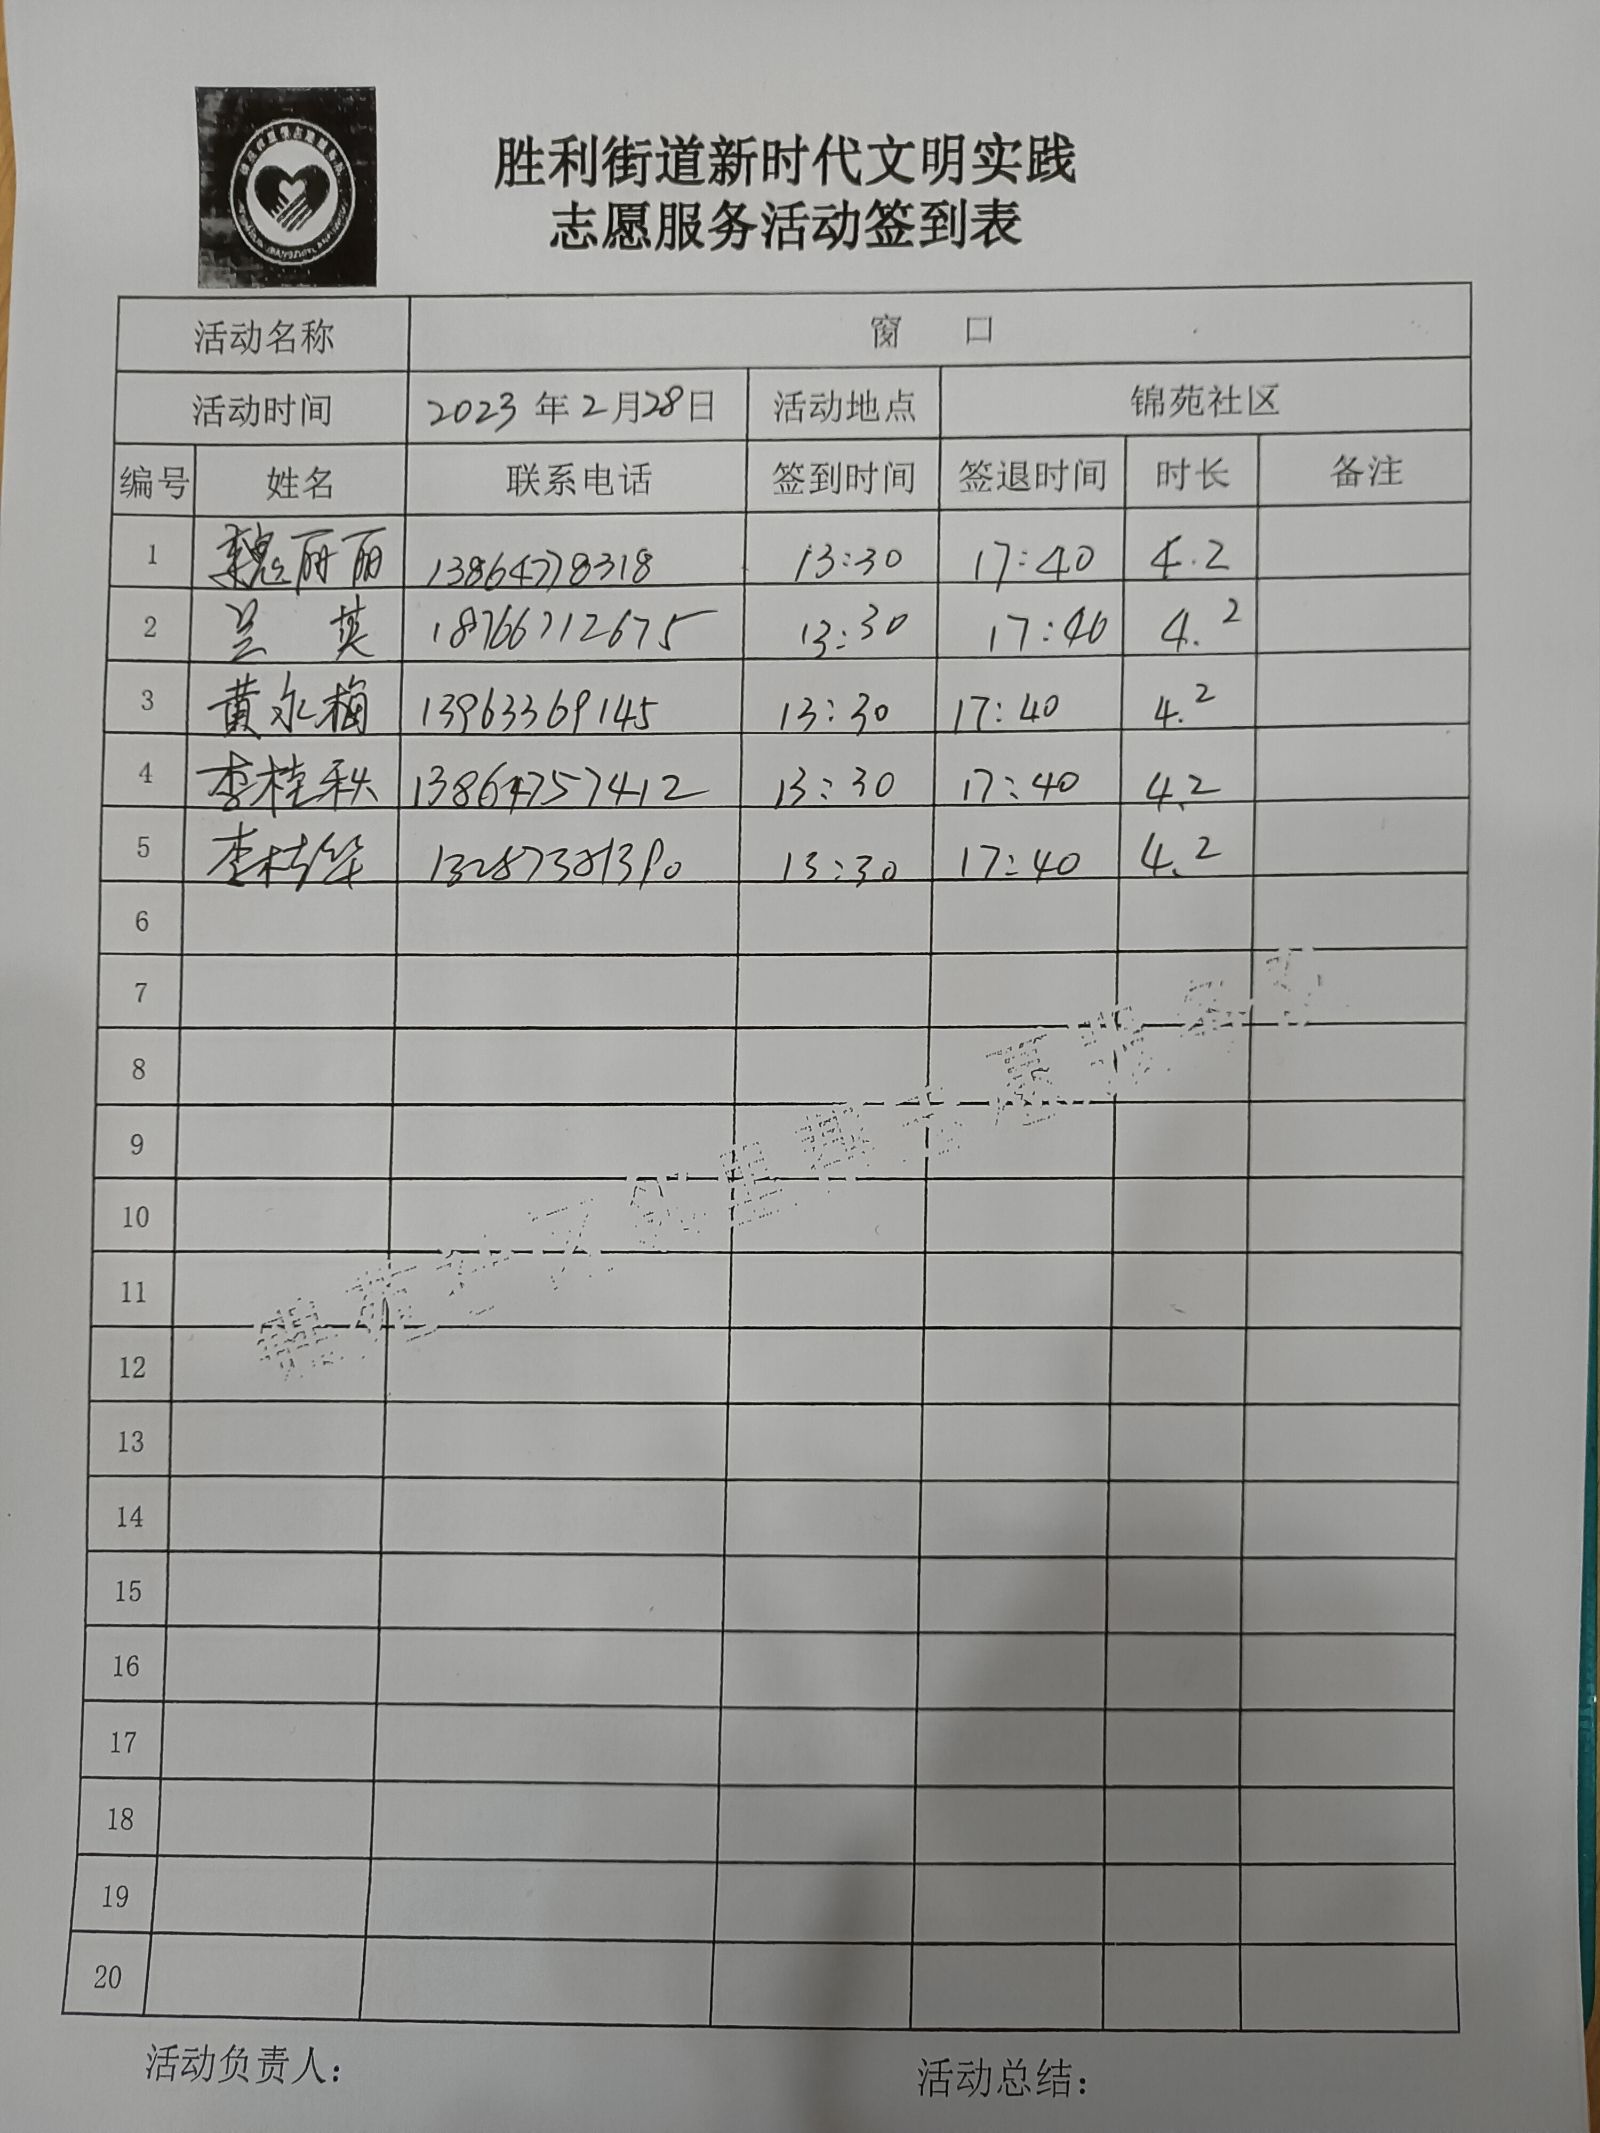 胜利街道新时代文明实践
志愿服务活动签到表
活动名称 窗 口
活动时间 2023 年 2 月 28 日 活动地点 锦苑社区
编号 姓名 联系电话 签到时间 签退时间 时长 备注
1 魏丽丽 13864778318 13:30 17:40 4.2
2 兰 英 18766712675 13:30 17:40 4.2
3 黄永梅 13963369145 13:30 17:40 4.2
4 李桂秋 13864757412 13:30 17:40 4.2
5 李桂华 13287381390 13:30 17:40 4.2
6
7
8
9
10
11
12
13
14
15
16
17
18
19
20
活动负责人: 活动总结: